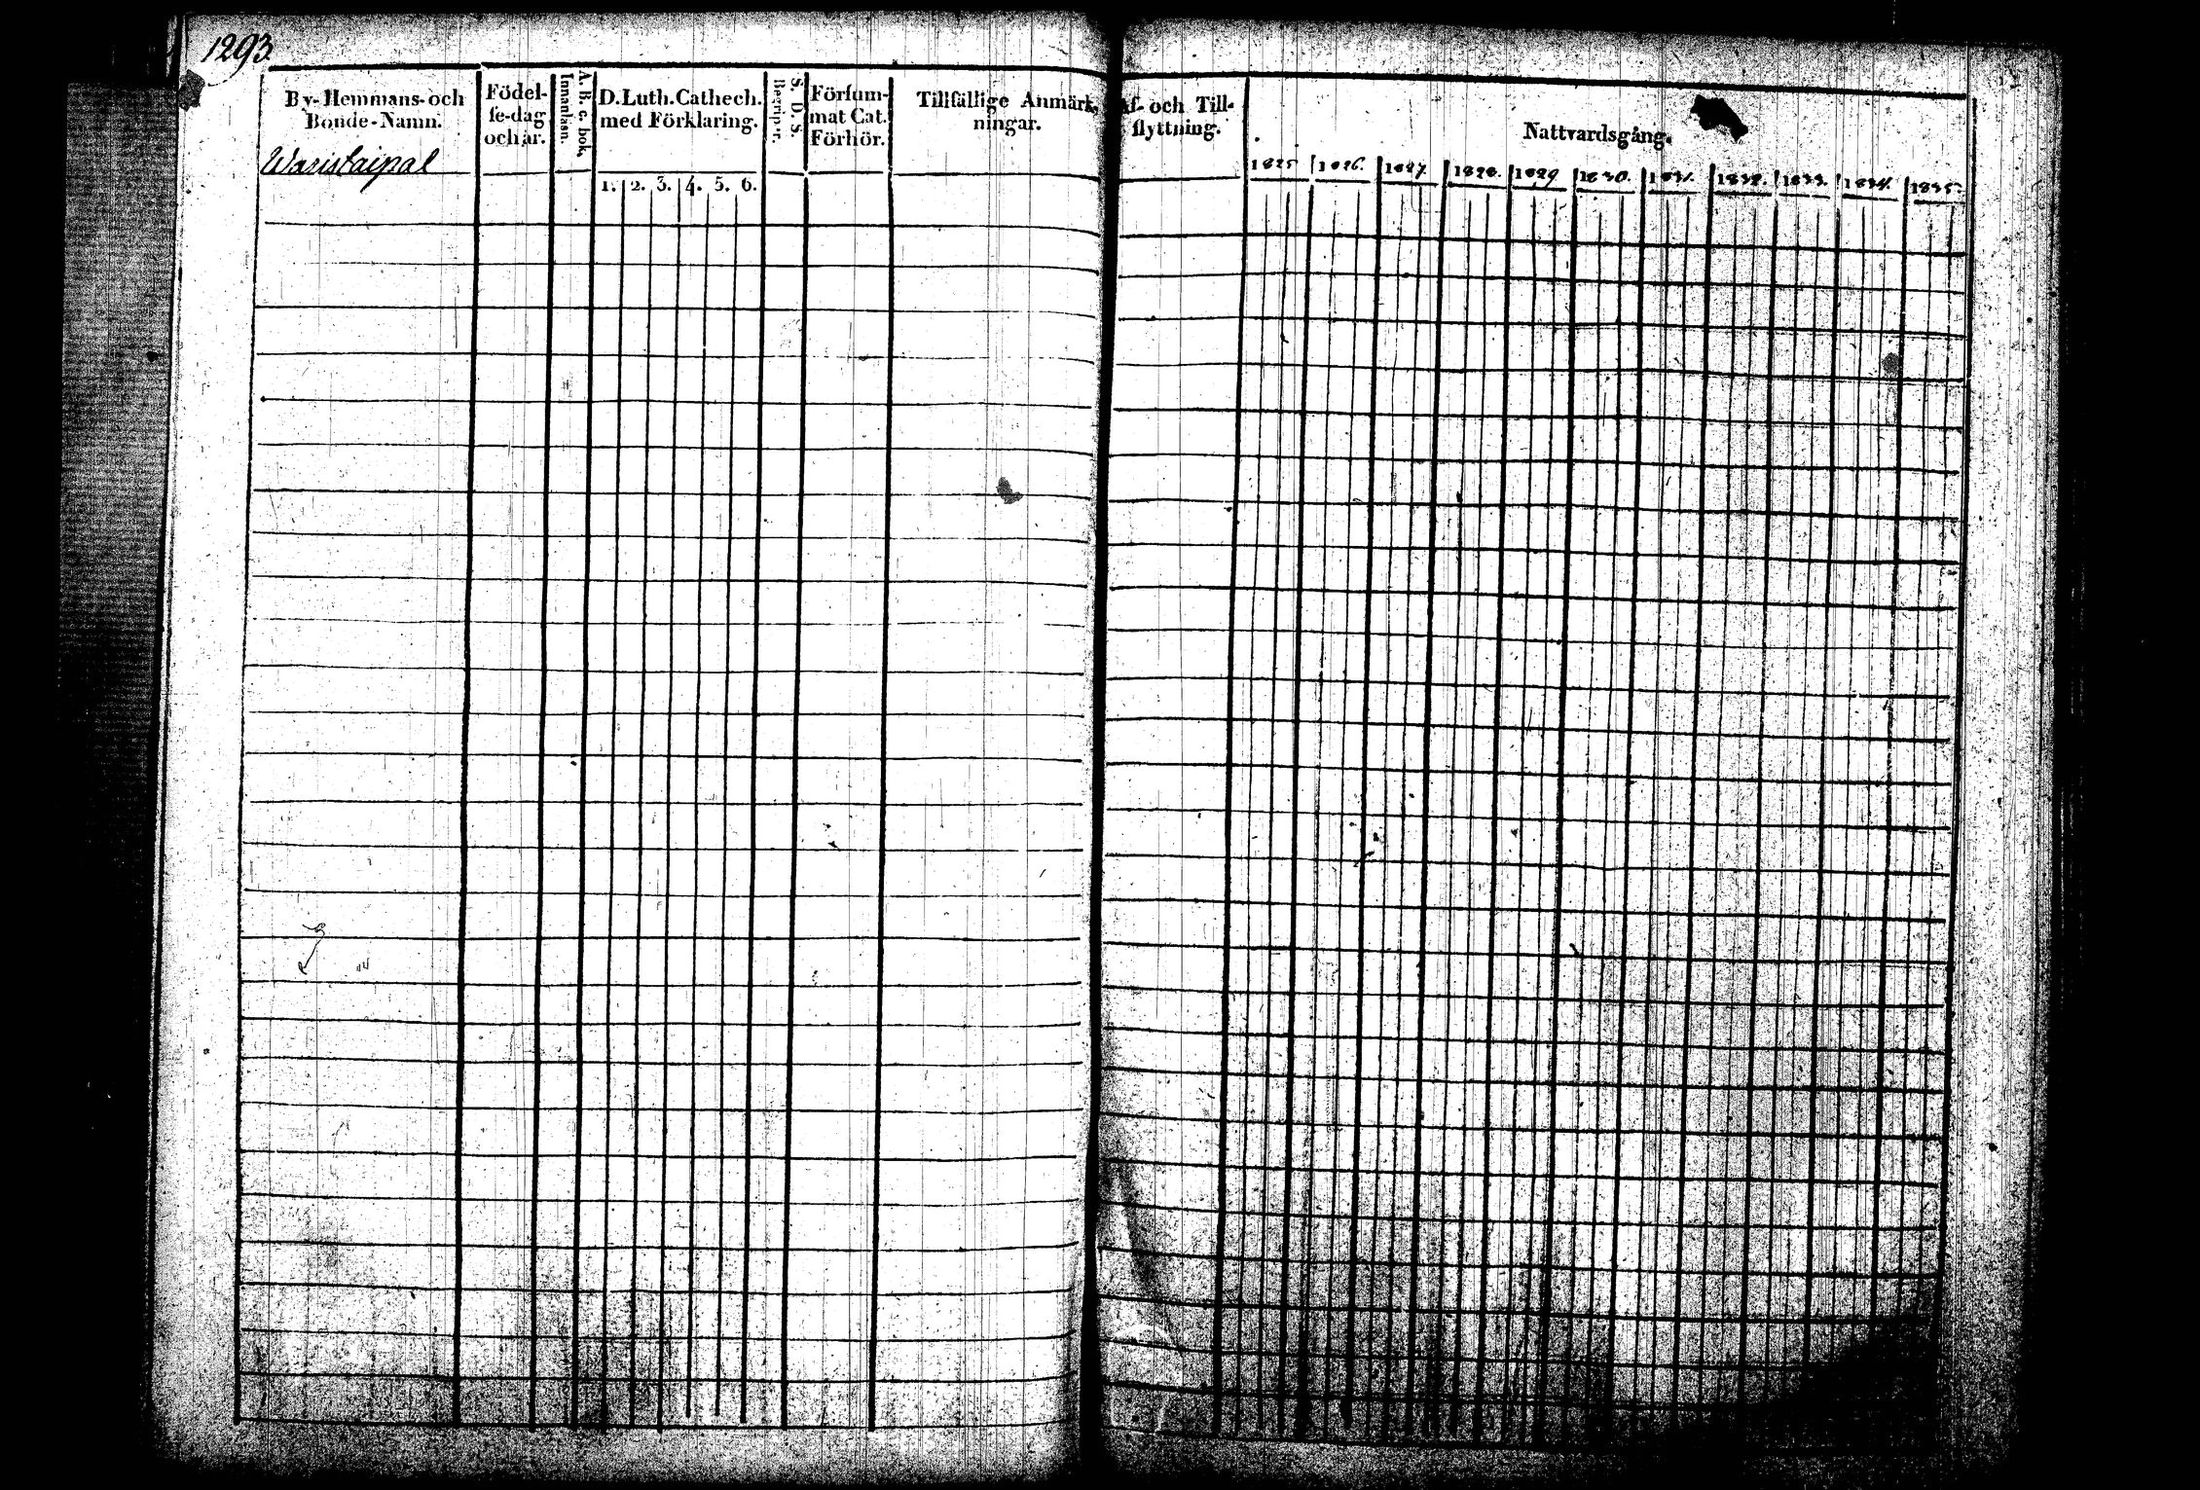 1293.
By-Hemmans- och
Bonde-Namn.
Waristaipal
Födel-
se-dag
och år.
A. B. c. bok.
Innanläsn.
D. Luth. Cathech.
med Förklaring.
1. 2. 3. 4. 5. 6.
S. D. S.
Begriper.
Försum-
mat Cat.
Förhör.
Tillfällige Anmärk-
ningar.
Af- och Till-
flyttning.
Nattvardsgång.
1825 1826. 1827. 1828. 1829 1830. 1831. 1832. 1833. 1834. 1835.